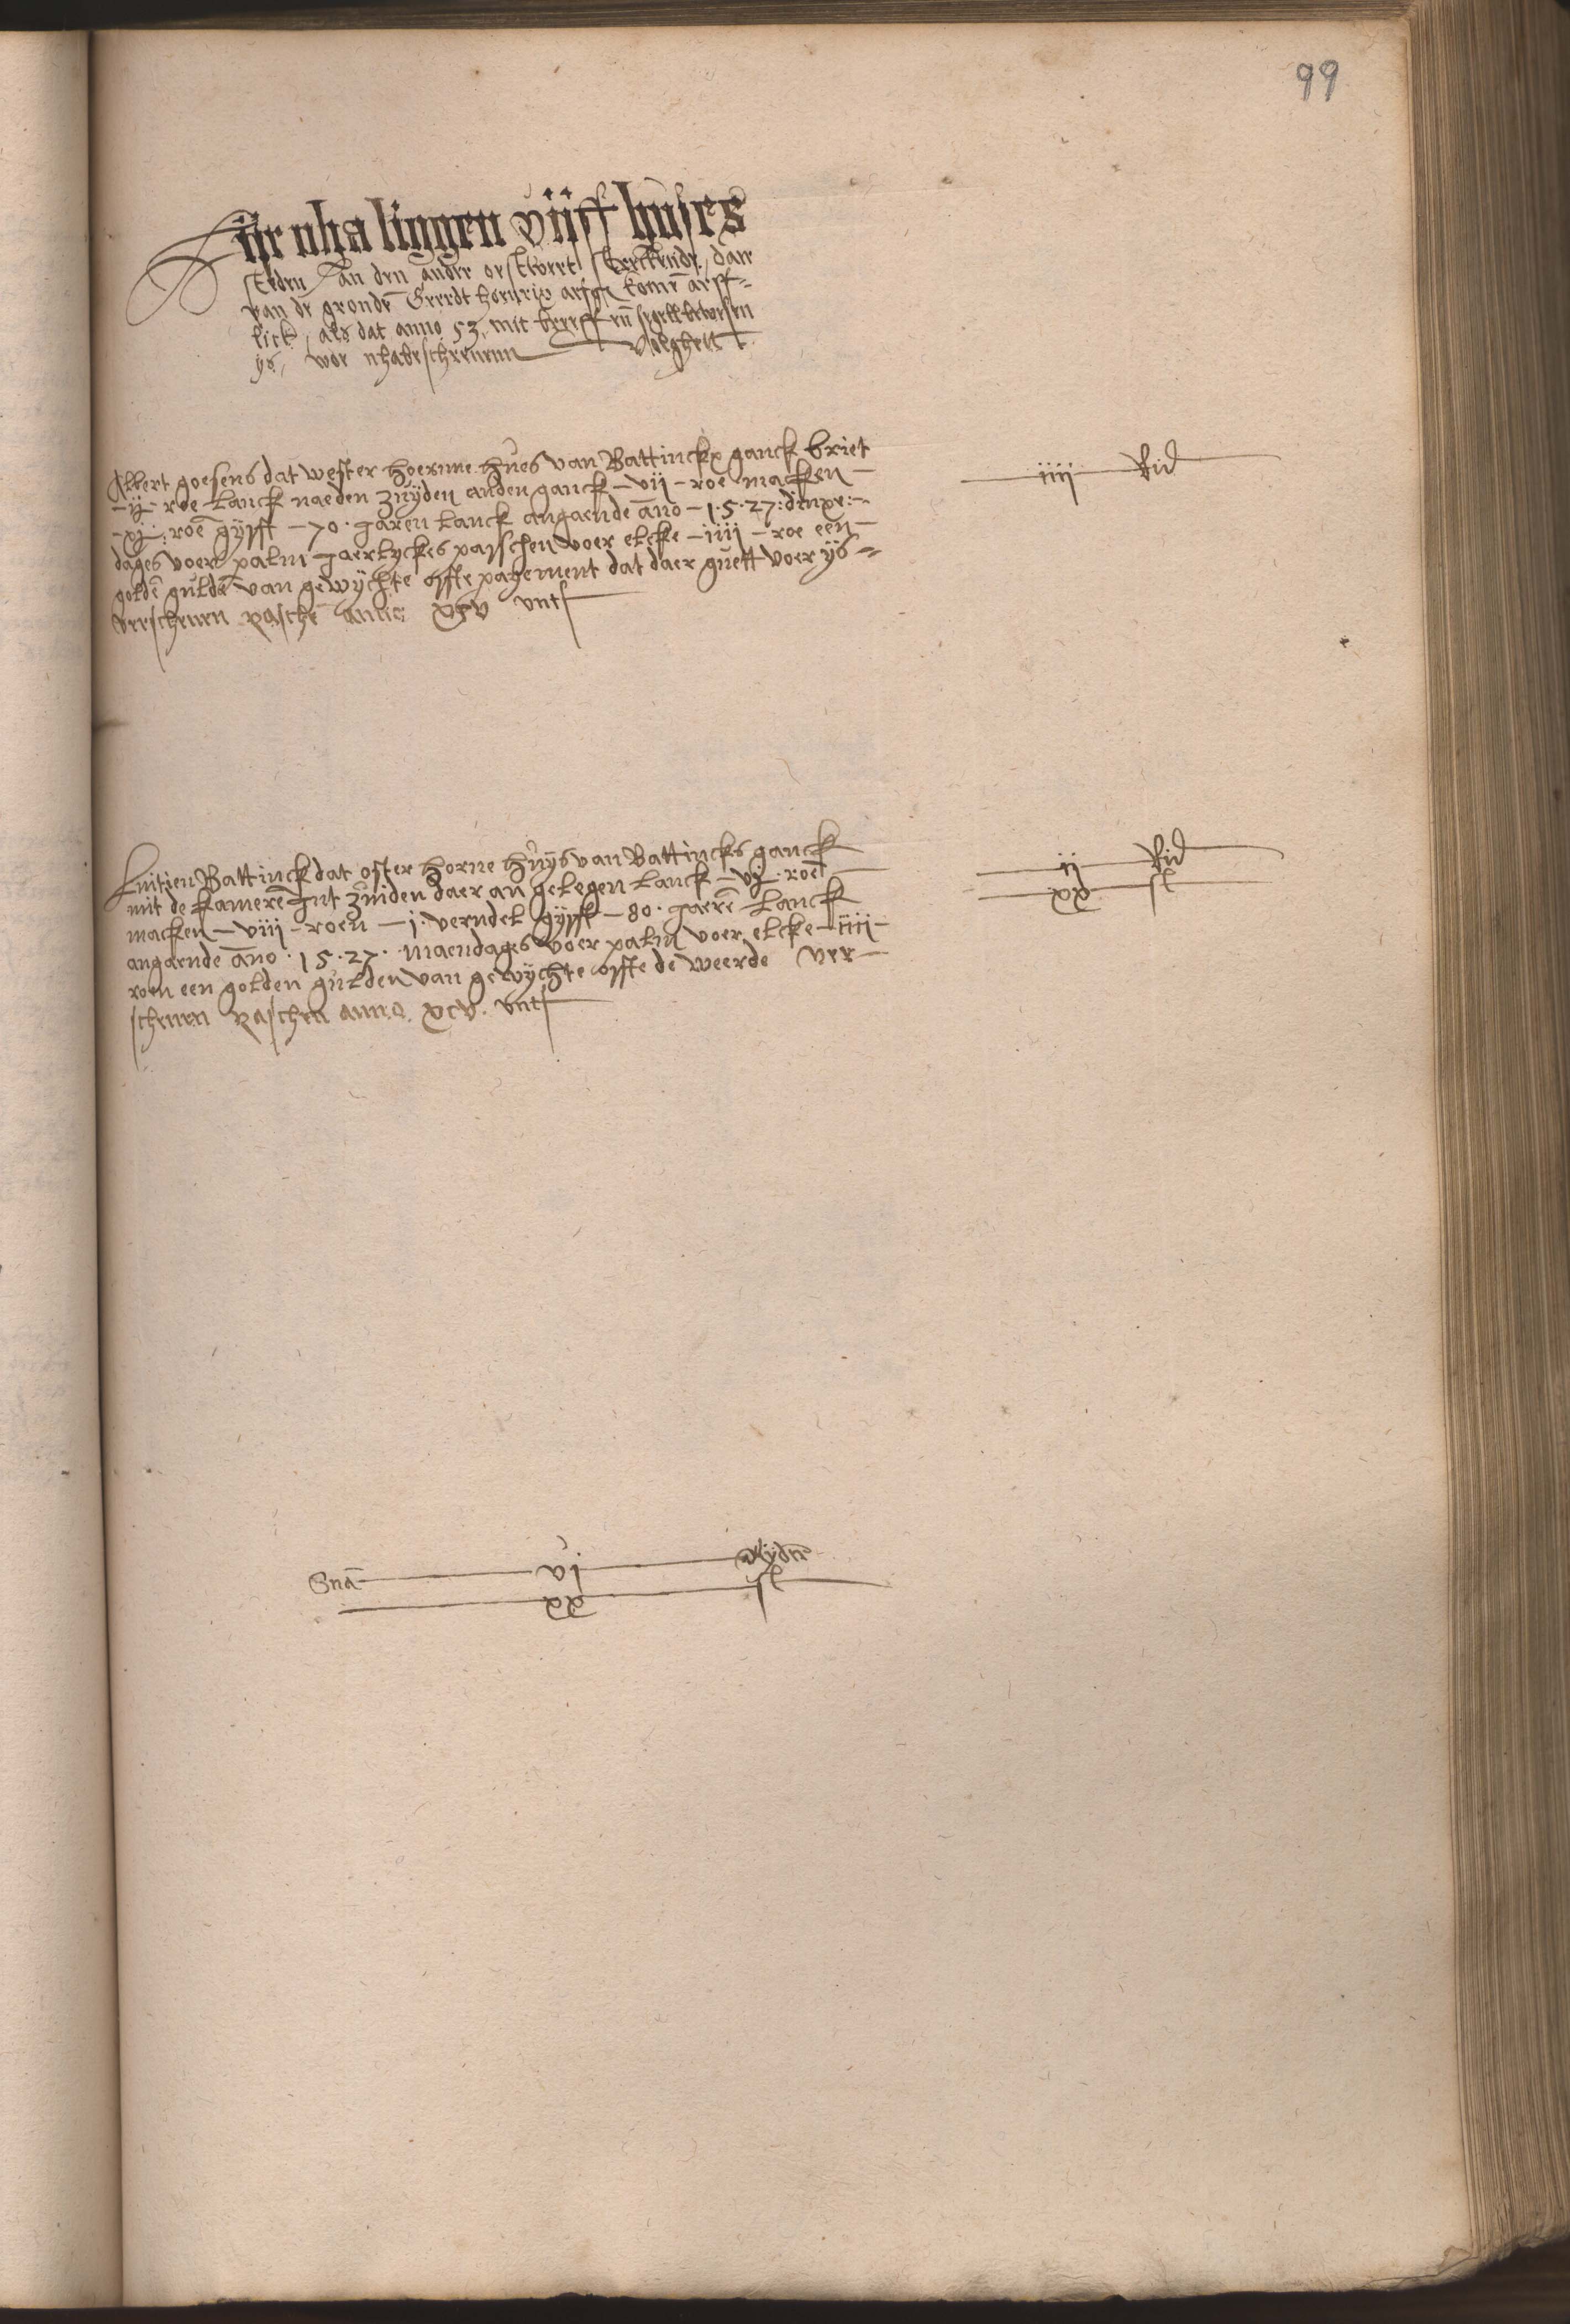 99
Hiir nha liggen viiff huses
steden An den ander oestwert streckende, daer
van de gronde Geerdt Henrix arfgen komen arff=
lick, als dat anno 53 mit breeff en segell bewesen
ys, wor nhabeschreuenn Volghett
Albert goesens dat wester hoernne hues van Battinckx ganck briet
- ij - roe Lanck naeden zuyden anden ganck - vij - roe macken -
- xj - roē gyfft - 70 · Jaren Lanck angaende āno - 1·5·27: dinxe: -
dages voer palm Jaerlyckes paesschen voer elcke - iiij - roe een -
goldē guldē van gewychte offte pagement dat daer guett voer ys =
verschenen paschē anno xcv vnts
iiij Rid
Luitien Battinck dat oster horne huys van Battincks ganck
mit de kamerē Int zuiden daer an gelegen Lanck - vj · roē
macken - viij - roen - j · verndel gyfft - 80 · Jaerē Lanck
angaende āno · 15·27 · maendages voer palm voer elcke - iiij -
roen een golden gulden van gewychte offte de weerde ver -
schenen paschen anno xcv · vnts
ij Rid
xx st
Sūa vj Ryder
xx st